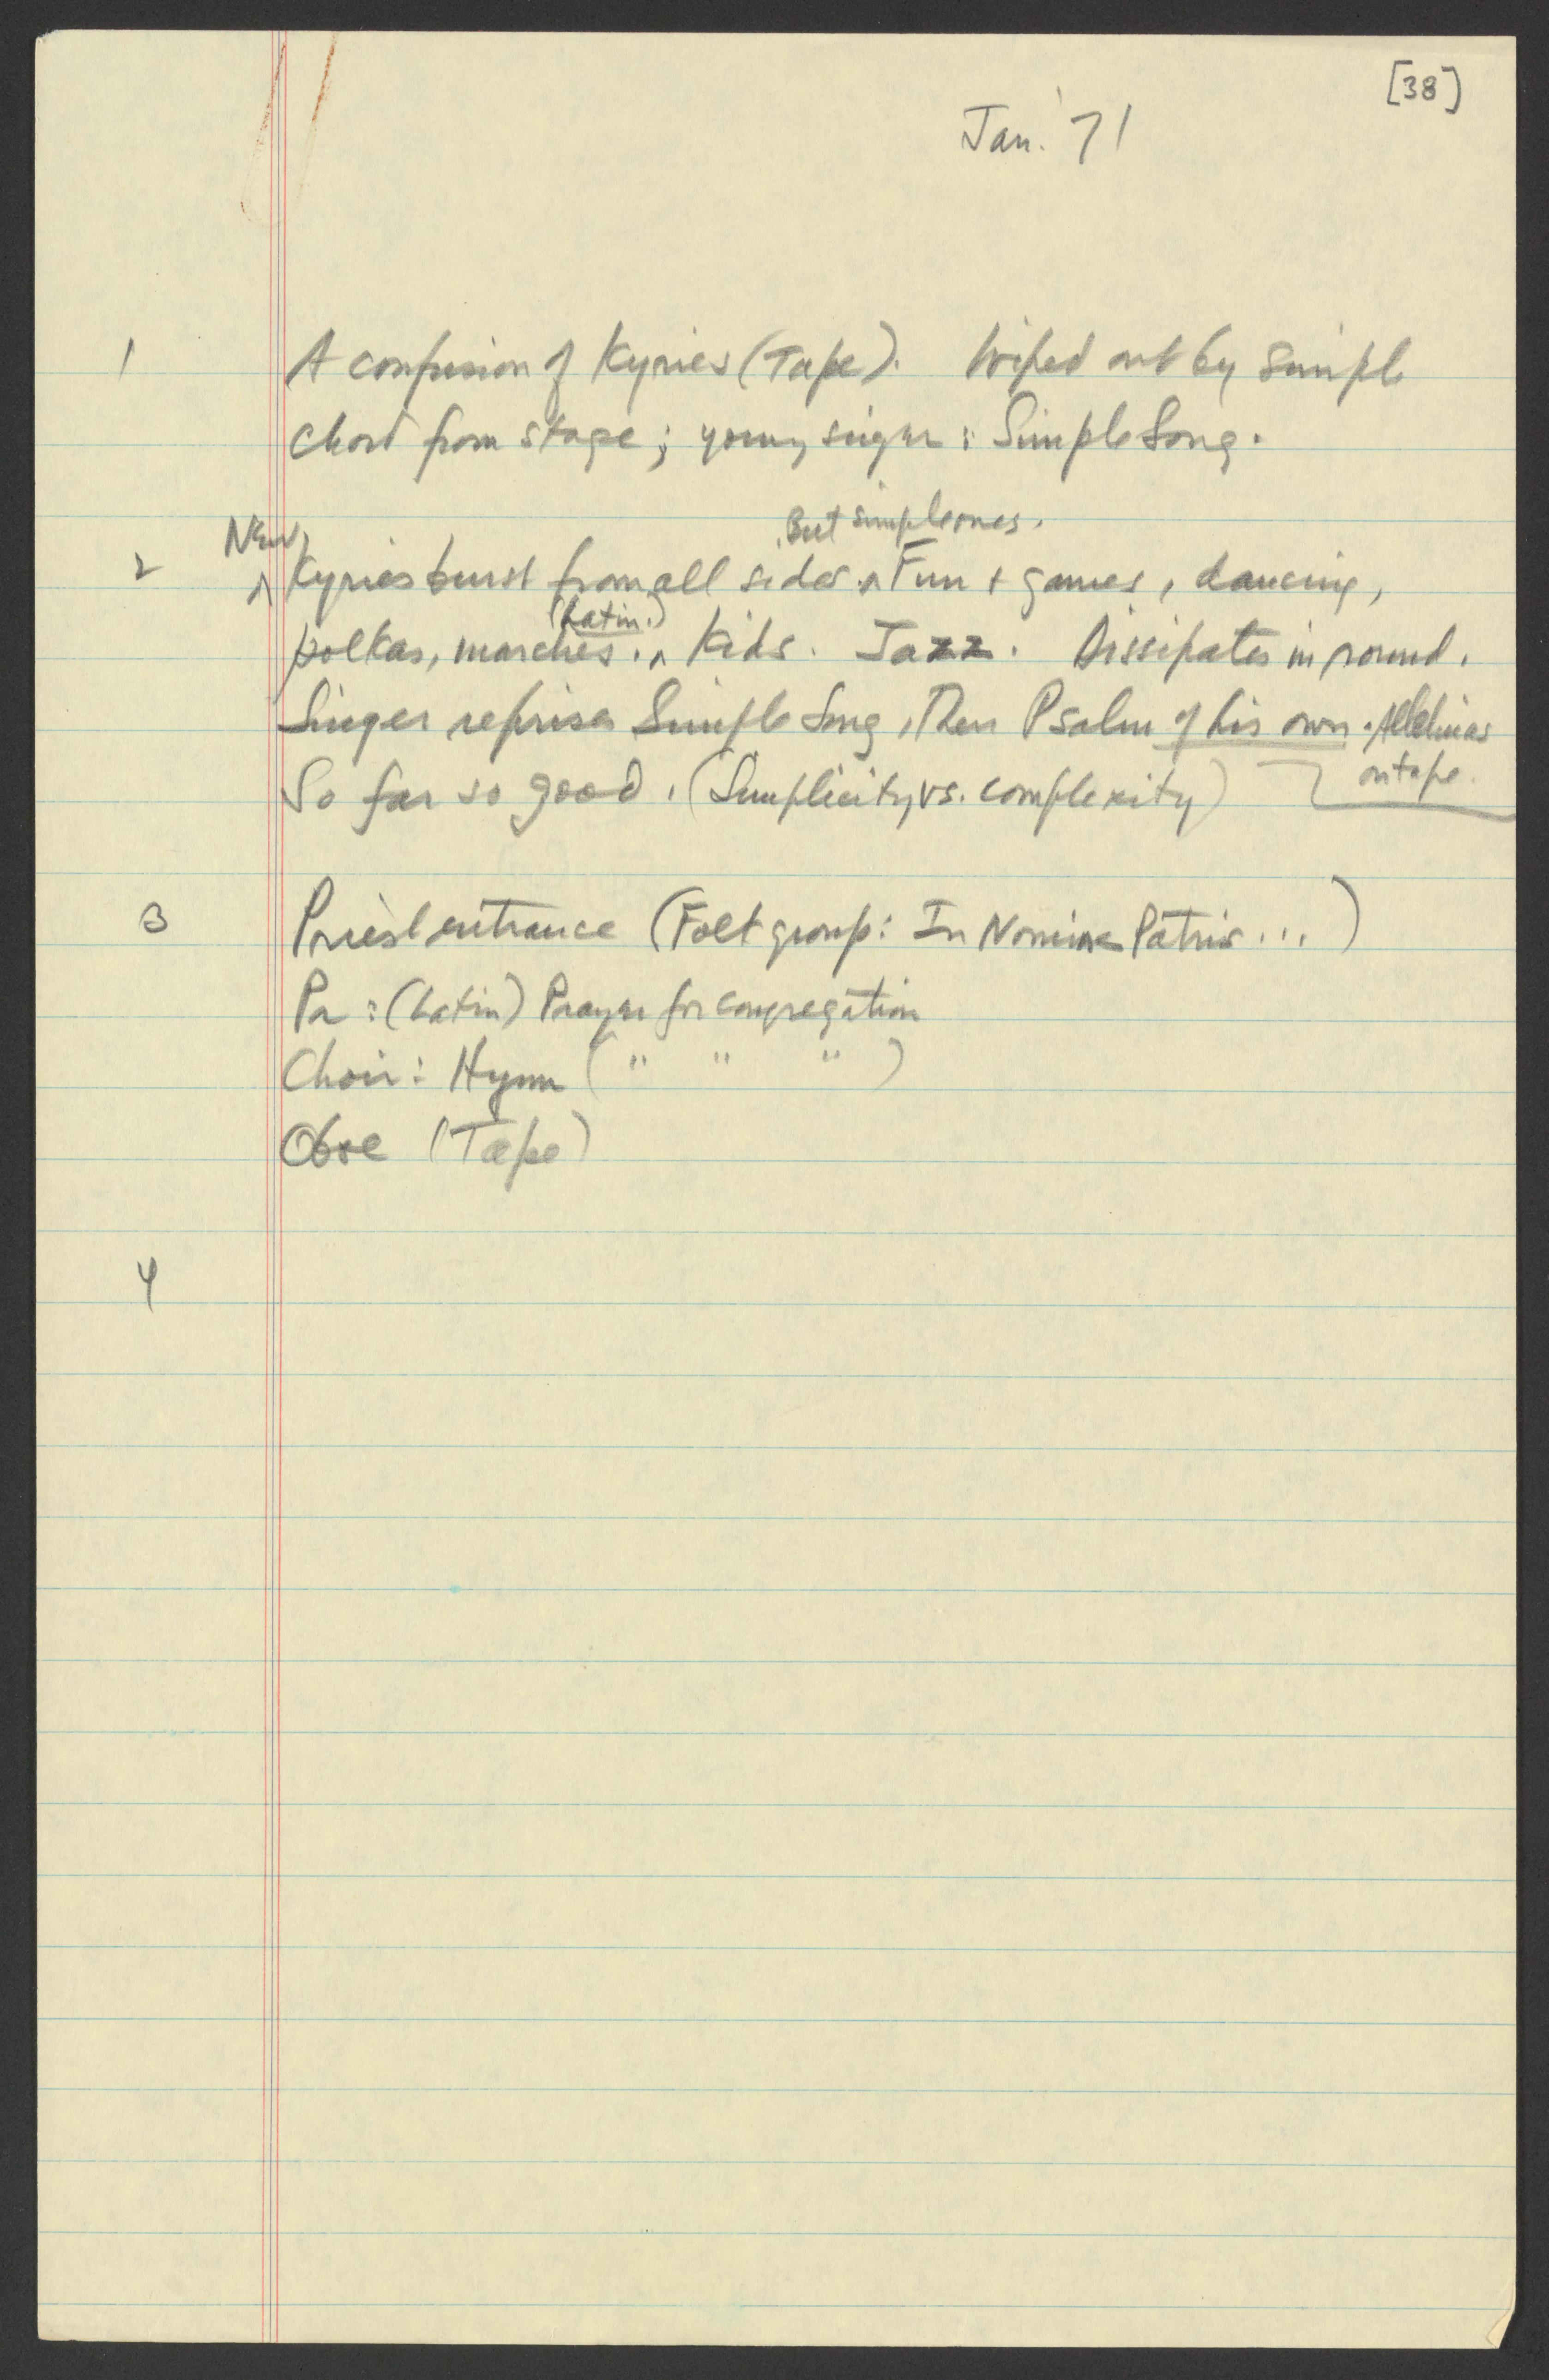 [38]
Jan. '71
1 A confusion of Kyries (Tape). Wiped out by simple
chord from stage; young singer: Simple Song.
But simple ones.
New
2 ^ Kyries burst from all sides. ^ Fun + games, dancing,
(Latin.)
polkas, marches. ^ Kids. Jazz. Dissipates in round.
Singer reprises Simple Song, then Psalm of his own. Alleluias
on tape.
So far so good. (Simplicity vs. complexity)
3 Priest entrance (Folk group: In Nomine Patris...)
Pr: (Latin) Prayer for congregation
Choir: Hymn ( " " " )
Oboe (Tape)
4